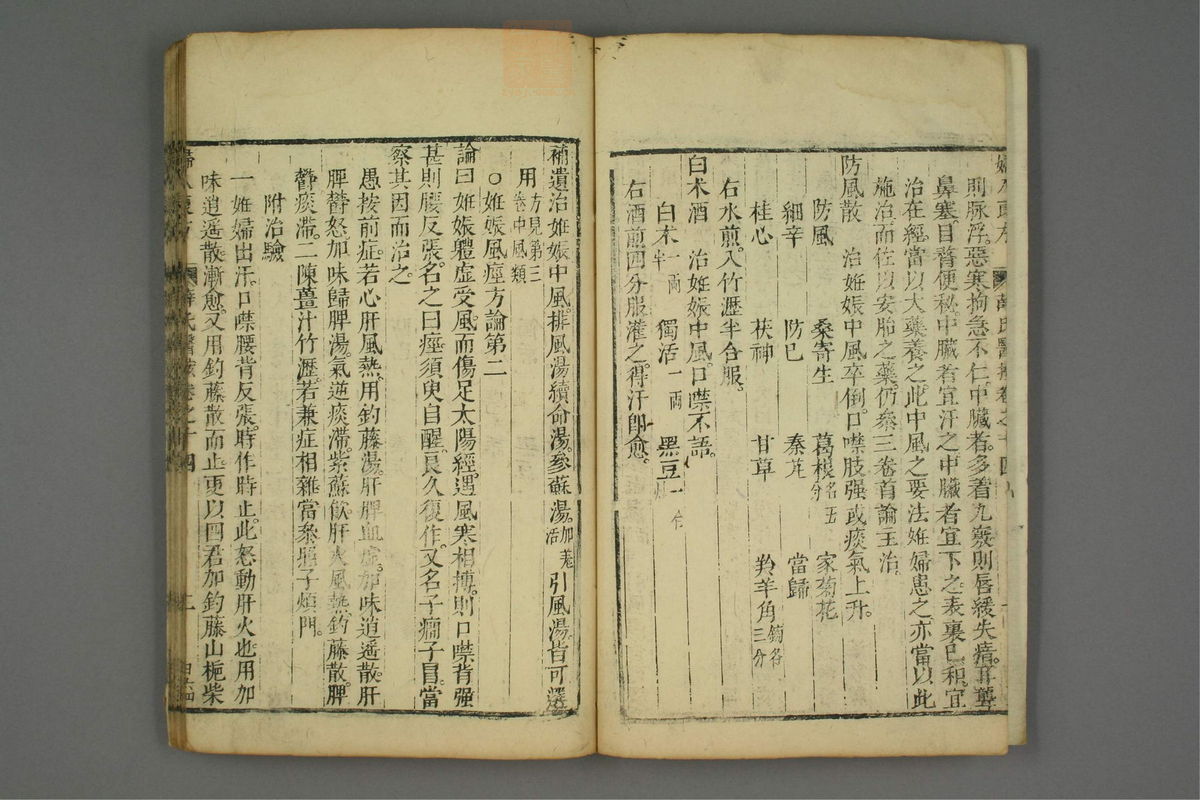 則脉浮。惡寒拘急不仁。中臟者。多着九竅。則唇緩失瘖。耳聾
鼻塞。目瞀便秘。中腑者宜汗之。中臟者宜下之。表裏已和。宜
治在經。當以大藥養之。此中風之要法。妊婦患之。亦當以此
施治。而佐以安胎之藥。仍叅三卷首論主治。
防風散　治妊娠中風卒倒。口噤肢强。或痰氣上升。
防風　桑寄生　葛根各五分　家菊花
細辛　防已　秦艽　當歸
桂心　茯神　甘草　羚羊角鎊各三分
右水煎。入竹瀝半合服。
白术酒　治妊娠中風。口噤不語。
白术一兩半　獨活一兩　黑豆一合
右酒煎四分服。灌之。得汗卽愈。
補遺治妊娠中風。排風湯續命湯。參蘇湯。加羗活引風湯。皆可選
用方見第三卷中風類
○妊娠風痙方論第二
論曰妊娠體虛受風。而傷足太陽經。遇風寒相搏。則口噤背强
甚則腰反張。名之曰痙。須臾自醒。良久復作。又名子癎子冒。當
察其因而治之。
愚按前症。若心肝風熱。用鈎藤湯。肝脾血虛。加味逍遥散。肝
脾鬱怒加味歸脾湯。氣逆痰滯。紫蘇飮。肝火風熱鈎藤散。脾
鬱痰滯。二陳薑汁竹瀝。若兼症相雜。當叅胚子煩門。
附治驗
一妊婦出汗。口噤腰背反張。時作時止。此怒動肝火也。用加
味逍遥散漸愈。又用鈎藤散而止。更以四君加鈎藤山梔柴